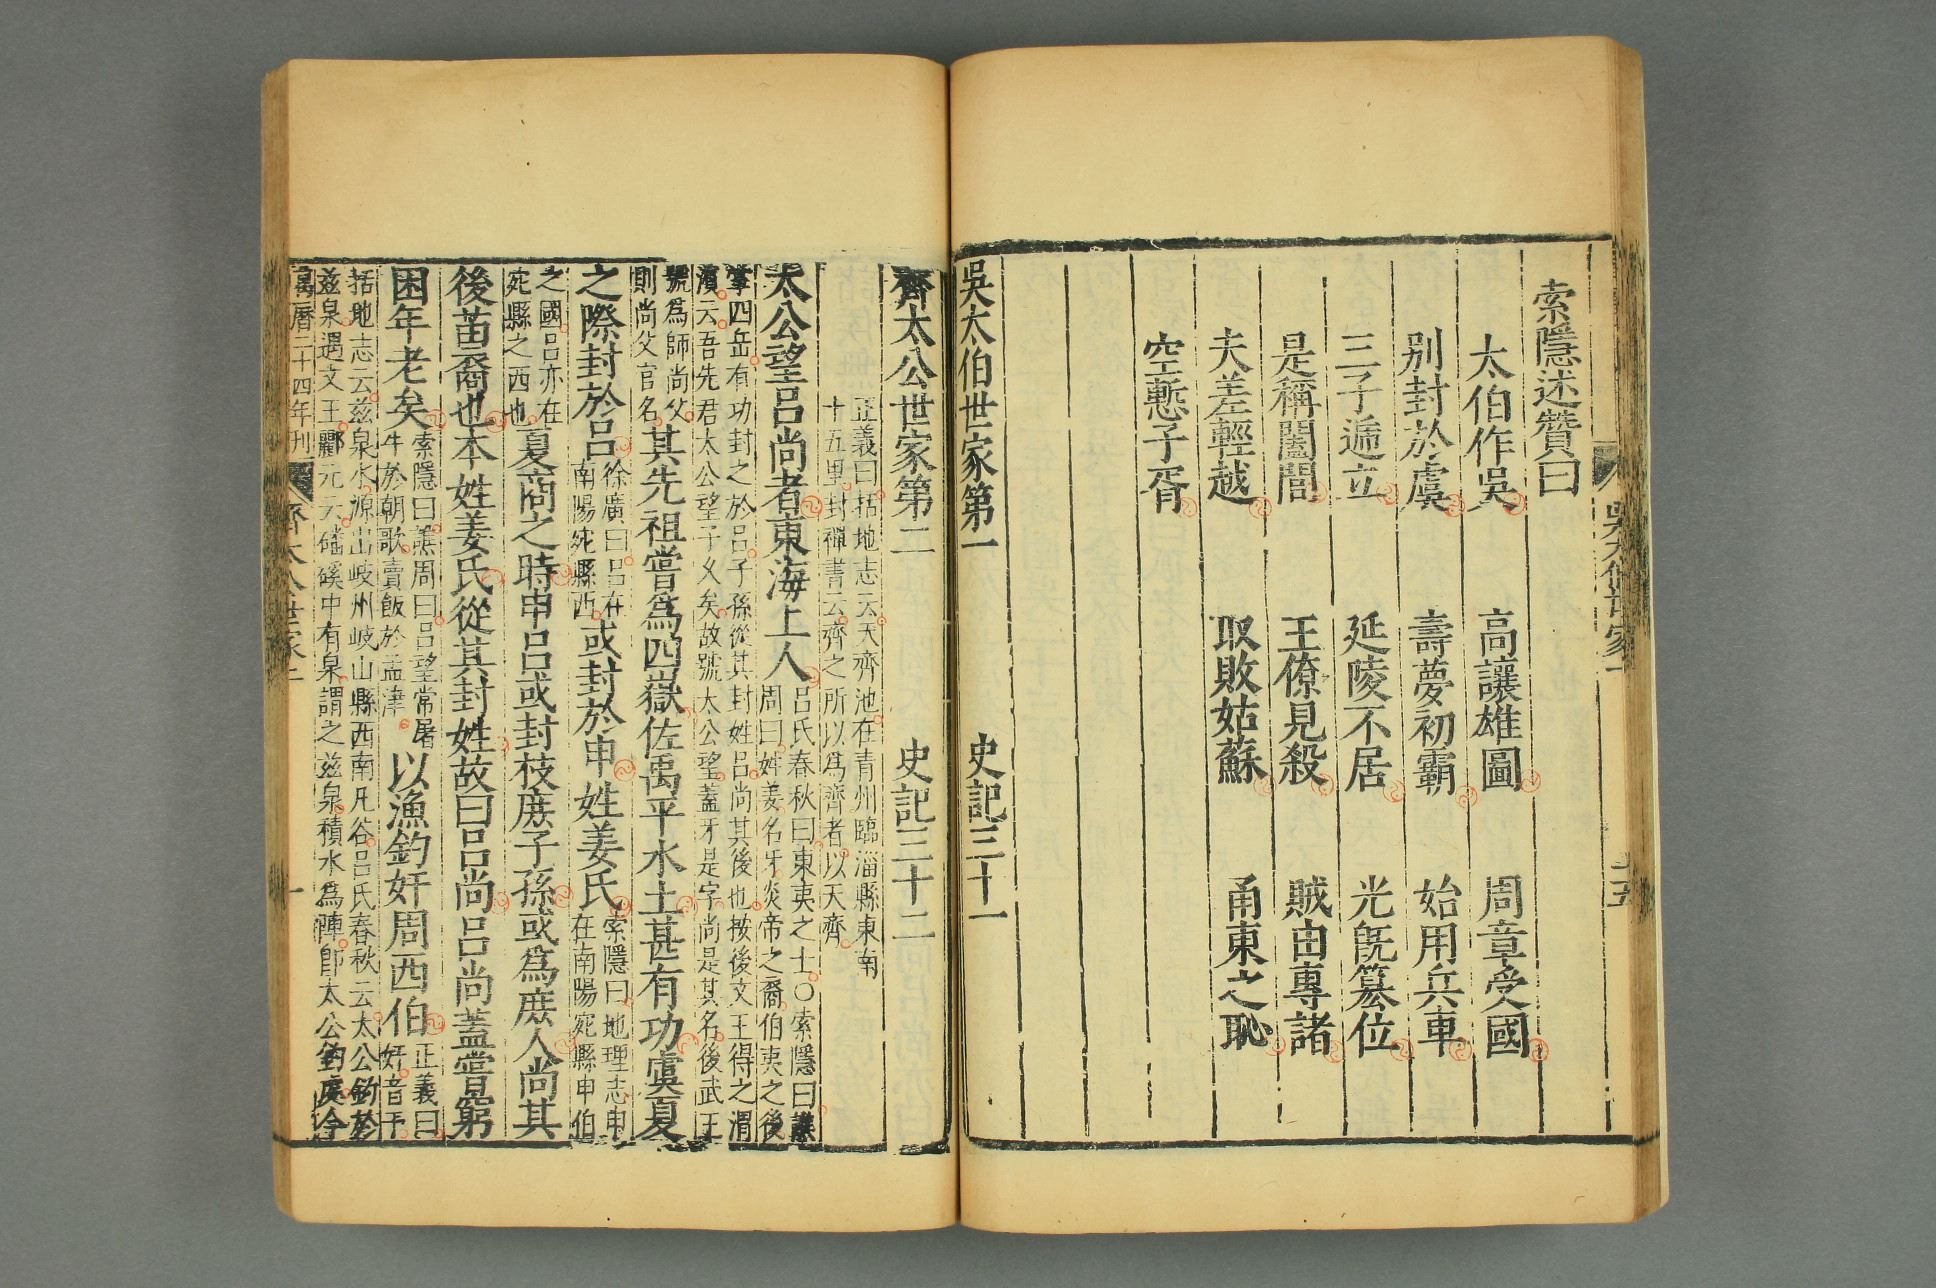 吳太伯世家一
十五
索隱述贊曰
太伯作吳 高讓雄圖 周章受國
别封於虞 壽夢初霸 始用兵車
三子遞立 延陵不居 光旣簒位
是稱闔閭 王僚見殺 賊由專諸
夫差輕越 取敗姑蘇 甬東之恥
空慙子胥
吳太伯世家第一 史記三十一
齊太公世家第二 史記三十二
正義曰括地志云天齊池在青州臨淄縣東南
十五里封禪書云齊之所以爲齊者以天齊
太公望呂尚者東海上人呂氏春秋曰東夷之士○索隱曰譙
周曰姓姜名牙炎帝之裔伯夷之後
掌四岳有功封之於呂子孫從其封姓呂尚其後也按後文王得之渭
濱云吾先君太公望子乆矣故號太公望蓋牙是字尚是其名後武王
號爲師尚父
則尚父官名其先祖嘗爲四嶽佐禹平水土甚有功虞夏
之際封於呂徐廣曰呂在
南陽宛縣西或封於申姓姜氏索隱曰地理志申
在南陽宛縣申伯
之國呂亦在
宛縣之西也夏商之時申呂或封枝庶子孫或爲庶人尚其
後苗裔也本姓姜氏從其封姓故曰呂尚呂尚蓋嘗窮
困年老矣索隱曰譙周曰呂望常屠
牛於朝歌賣飯於孟津以漁釣奸周西伯正義曰
奸音干
括地志云茲泉水源出岐州岐山縣西南凡谷呂氏春秋云太公釣於
茲泉遇文王酈元云磻磎中有泉謂之茲泉積水爲陣卽太公釣處今
萬曆二十四年刊
齊太公世家二
一